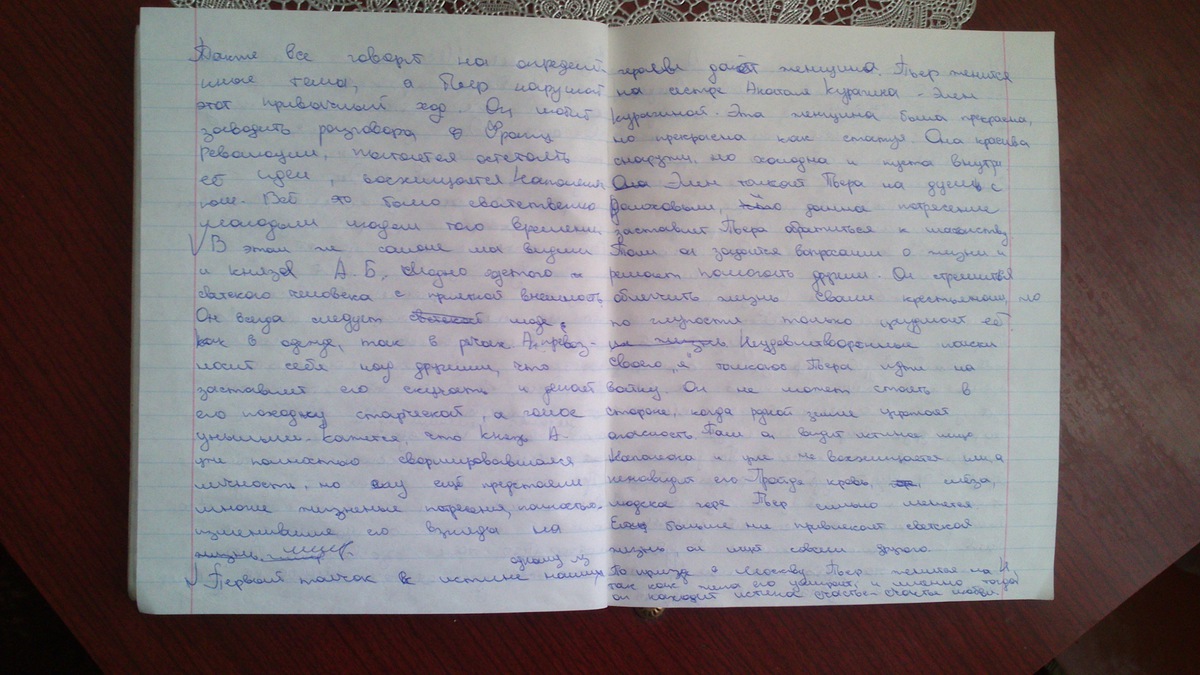 все говорят на определ
ные темы, а Пьер наруш
этот привычный ход. Он любит
заводить разговора о Франц
Революции, пытается отстоять
её идеи, восхищается Наполеон
ном. Всё это было свойственно
молодым людям того времени
В этом же салоне мы видим
и князя А. Б., модно одетого
светского человека с приятной внешность
Он всегда следует моде
как в одежде, так в речах А. превоз-
носит себя над другими, что
заставляет его скучать и делает
его походку старческой, а голос
унылым. Кажется, что князь А.
уже полностью сформировавшаяся
личность, но ему ещё предстояли
многие жизненые потрения, полностью
изменившие его взгляды на
жизнь
одному из
Первый толчок в истине наших
героев даёт женщина. Пьер женится
на сестре Анатоля Курагина - Элен
Курагиной. Эта женщина была прекрасна,
но прекрасна как статуя. Она красива
снаружи, но холодна и пуста внутри
Элен толкает Пьера на дуэль с
Долоховым, данна потресение
заставит Пьера обратиться к масонству
Там он задаётся вопросами о жизни и
решает помогать другим. Он стремиться
облегчить жизнь своим крестьянам, но
по глупости только ухудшает её.
Неудовлетворённые поиски
своего "я" толкают Пьера идти на
войну. Он не может стоять в
стороне, когда родной земле угрожает
опасность. Там он видит истиное лицо
Наполеона и уже не восхищается им, а
ненавидит его. Пройдя кровь, слёзы,
людское горе Пьер сильно меняется
Его больше не привлекает светская
жизнь, он ищет совсем другого.
По приезде в Москву Пьер женился на Н,
так как жена его умирает, и именно тогда
он находит истиное счастье - счастье любви.